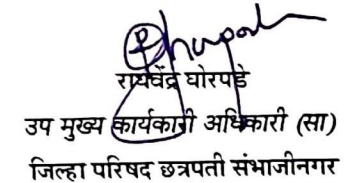 राघवेंद्र घोरपडे
उप मुख्य कार्यकारी अधिकारी (सा)
जिल्हा परिषद छत्रपती संभाजीनगर